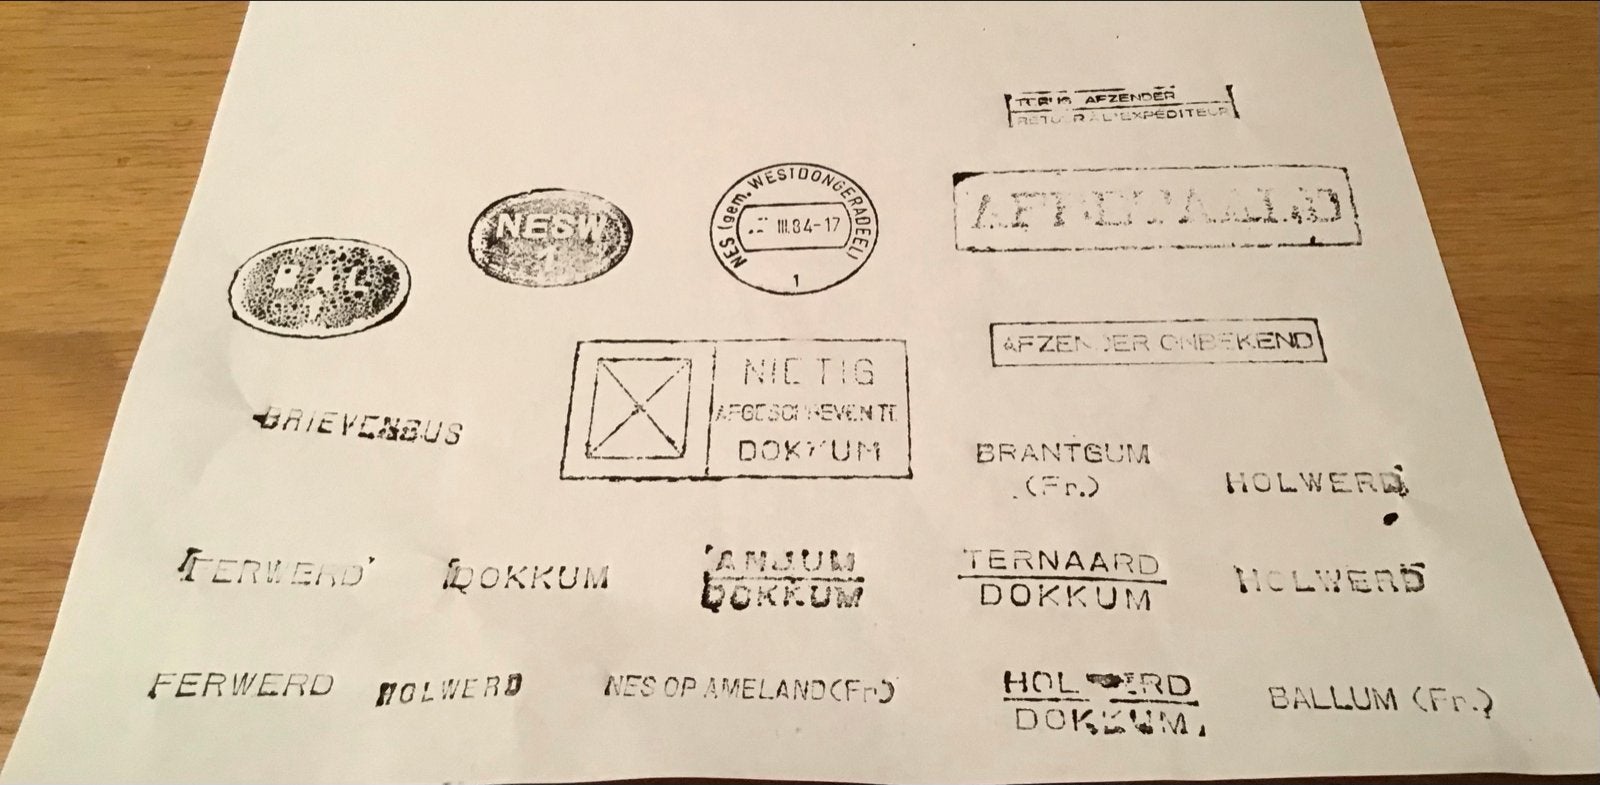 TERUG AFZENDER
RETOUR À L'EXPÉDITEUR
AFBEPAALD
NES (gem. WESTDONGERADEEL)
III.84-17
1
NESW
1
BAL
1
AFZENDER ONBEKEND
NIETIG
AFGESCHREVEN TE
DOKKUM
BRIEVENBUS
BRANTGUM
(Fr.)
HOLWERD
FERWERD
DOKKUM
ANJUM
DOKKUM
TERNAARD
DOKKUM
HOLWERD
FERWERD
HOLWERD
NES OP AMELAND (Fr.)
HOLWERD
DOKKUM
BALLUM (Fr.)